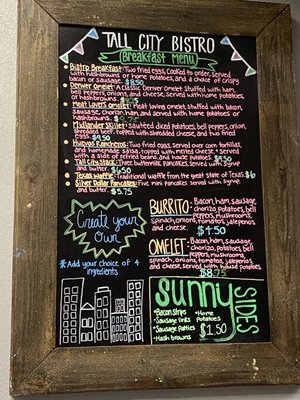 TALL CITY BISTRO
Breakfast Menu
Bistro Breakfast: Two fried eggs, cooked to order, served
with hashbrowns or home potatoes, and a choice of crispy
Denver Omelet: A classic Denver Omelet stuffed with ham,
bell peppers, onions, and cheese, served with home potatoes,
or hashbrowns.
Meat Lovers Omelet: Meat loving omelet, stuffed with bacon,
sausage, chorizo, ham, and served with home potatoes or
hashbrowns.
Midlander Skillet: sautéed diced potatoes, bell peppers, onion,
shredded beef, topped with shredded cheese, and two fried
eggs. $9.50
Huevos Rancheros: Two fried eggs, served over corn tortillas,
and homemade salsa, topped with melted cheese; served
with a side of refried beans and home potatoes $9.50
Tall City Stack: Three buttermilk pancakes served with syrup
and butter. $6.50
Texas Waffle: Traditional waffle from the great state of Texas. $6
Silver Dollar Pancakes: Five mini pancakes served with syrup
and butter. $5.75
Create your
Own
*Add your choice of 4
ingredients
BURRITO: Bacon, ham, sausage,
chorizo, potatoes, bell
peppers, mushrooms,
spinach, onions, tomatoes, jalepenos
and cheese. $4.50
OMELET: Bacon, ham, sausage,
chorizo, potatoes, bell
peppers, mushrooms,
spinach, onions, tomatoes, jalepenos
and cheese, served with house potatoes.
$8.95
Sunny
SIDES
•Bacon strips
•Sausage links
•Sausage Patties
•Hash browns
•Home
Potatoes
$1.50